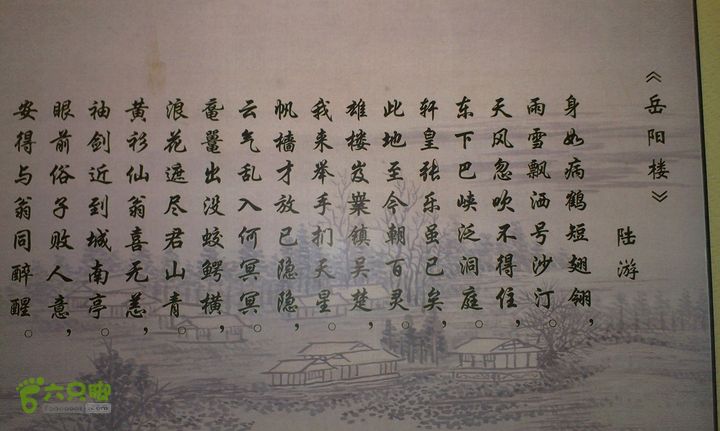 《岳阳楼》
陆游
身如病鹤短翅翎，
雨雪飘洒号沙汀。
天风忽吹不得住，
东下巴峡泛洞庭。
轩皇张乐虽已矣，
此地至今朝百灵。
雄楼岌嶪镇吴楚，
我来举手扪天星。
帆樯才放已隐隐，
云气乱入何冥冥。
鼋鼍出没蛟鳄横，
浪花遮尽君山青。
黄衫仙翁喜无恙，
袖剑近到城南亭。
眼前俗子败人意，
安得与翁同醉醒。
六只脚